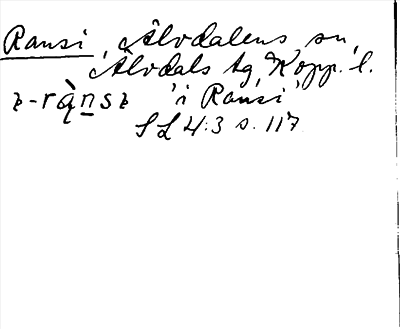 Ransi, Älvdalens sn,
Älvdals tg, Kopp. l.
'i Ransi'
SL 4:3 s. 117